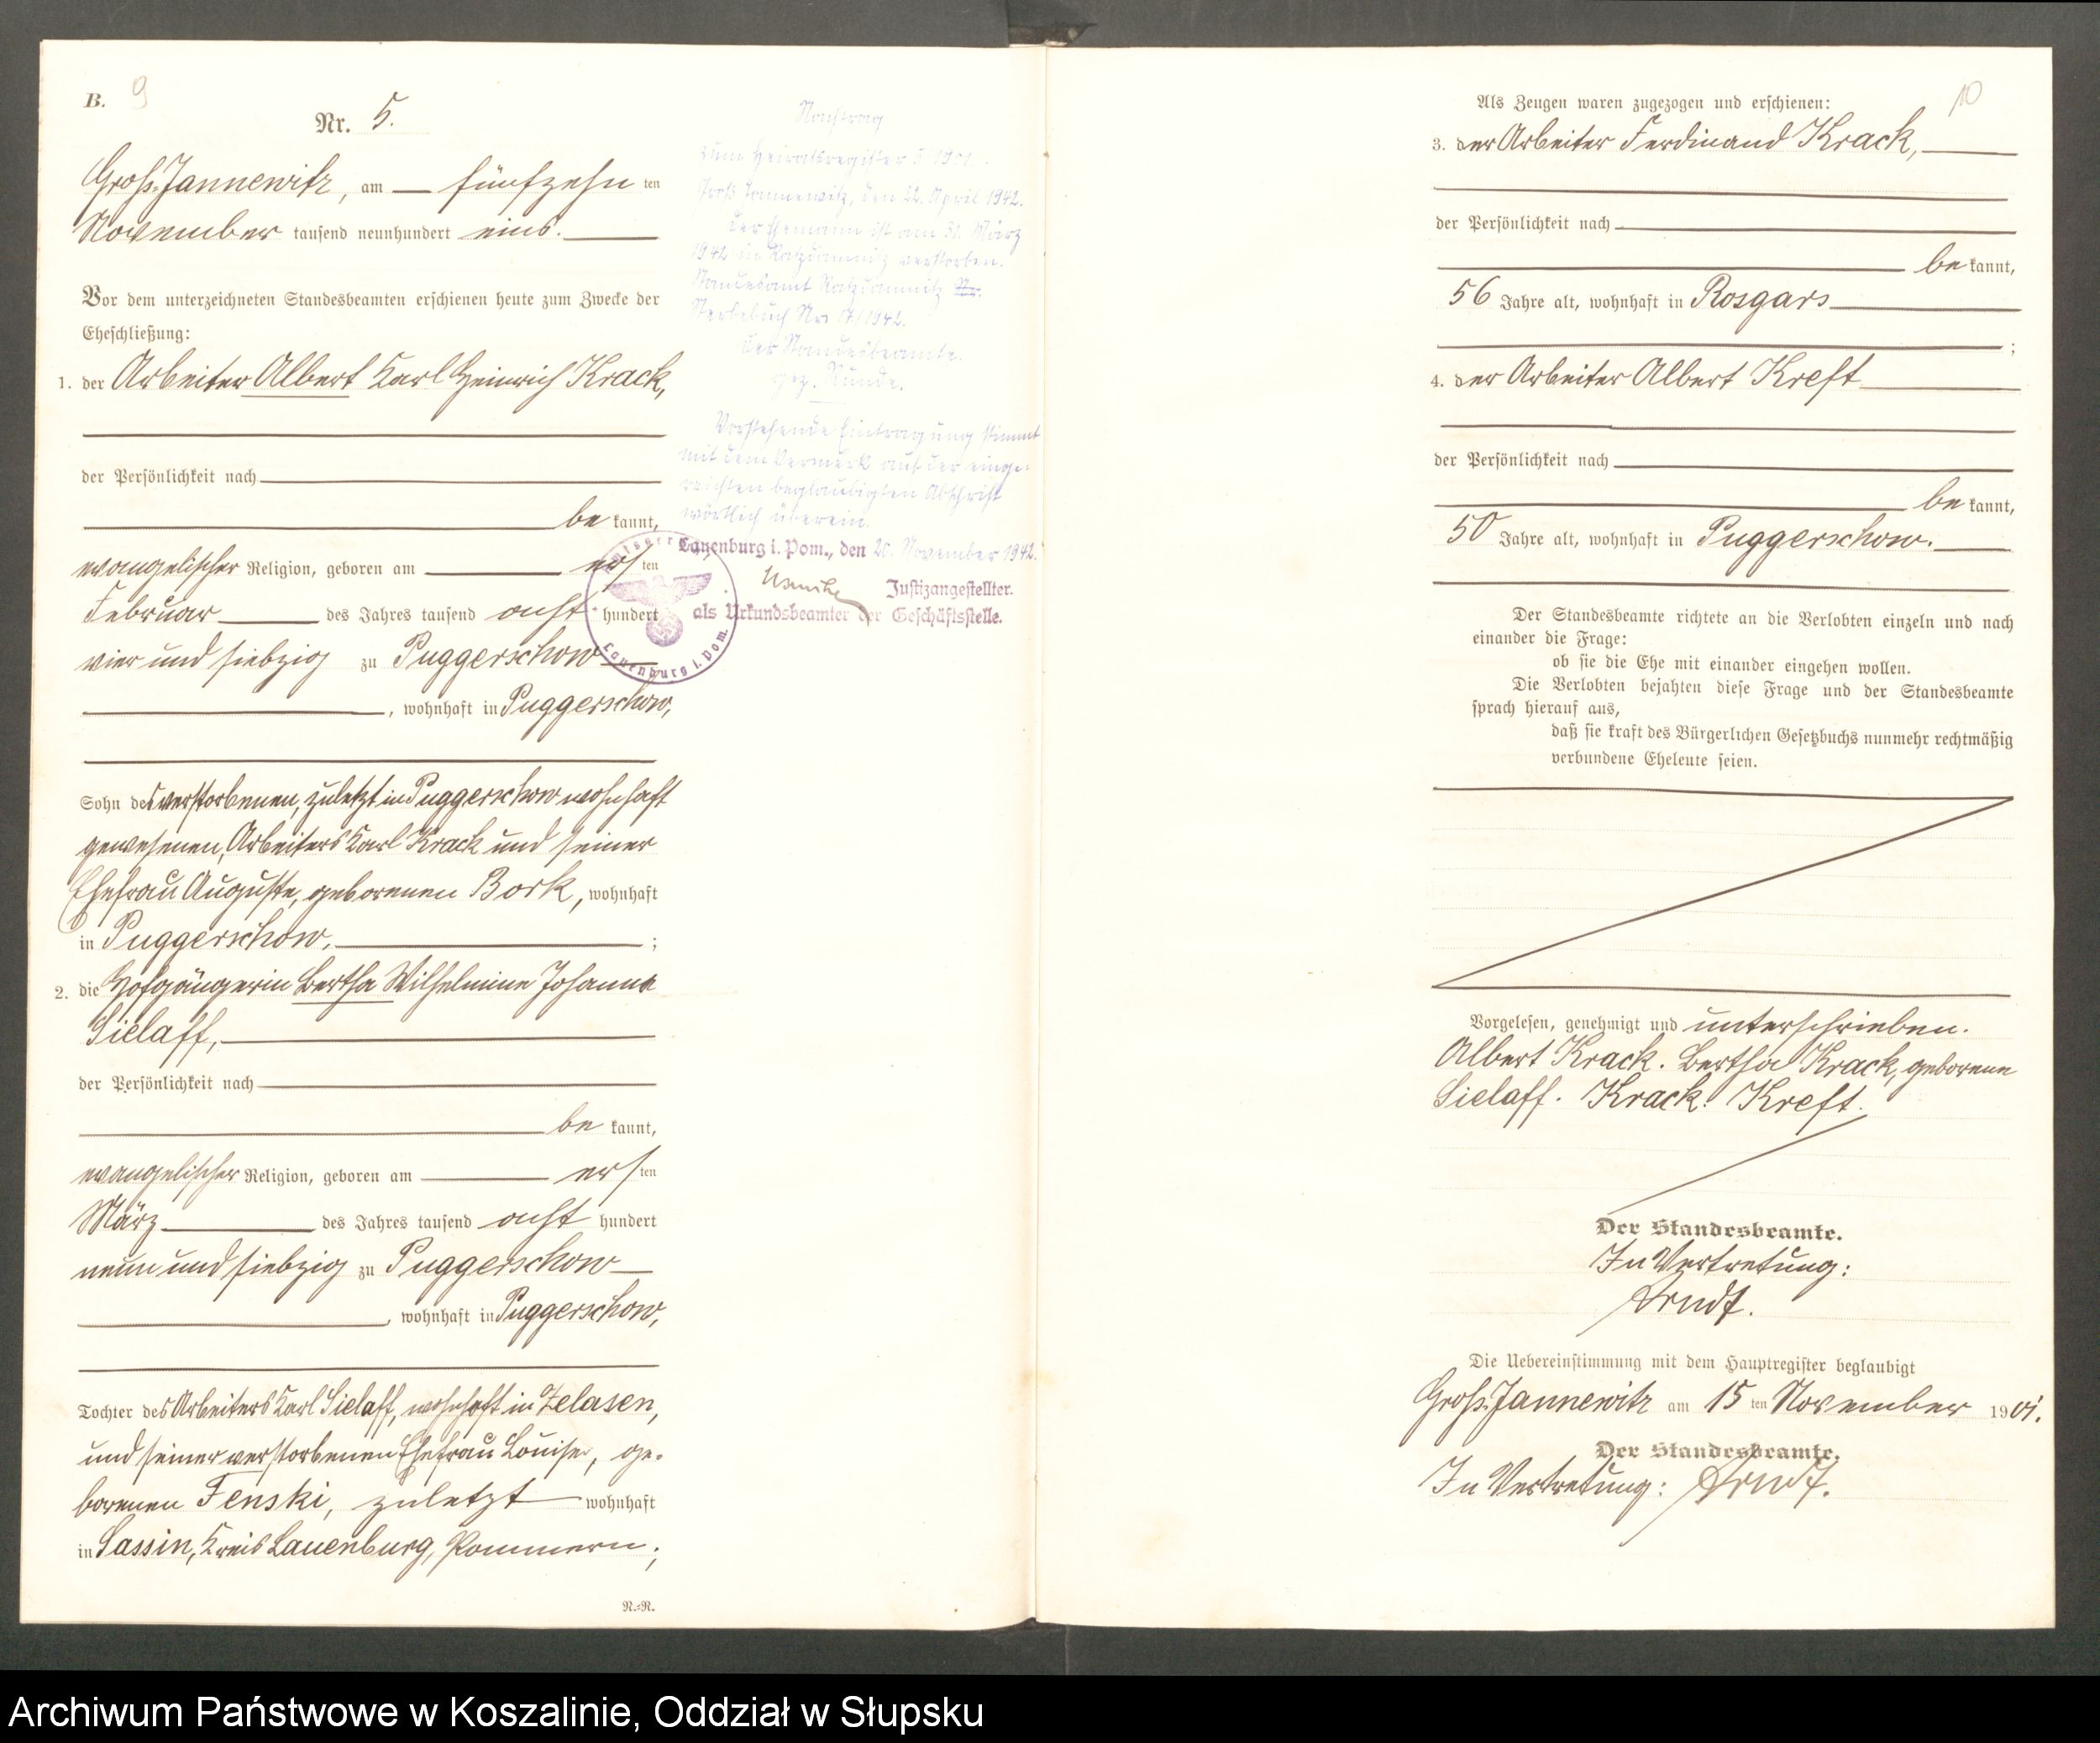 B. 9
Nr. 5.
Groß-Jannewitz, am fünfzehn ten
November tausend neunhundert eins.
Vor dem unterzeichneten Standesbeamten erschienen heute zum Zwecke der
Eheschließung:
1. der Arbeiter Albert Karl Heinrich Krack,
der Persönlichkeit nach
be kannt,
evangelischer Religion, geboren am ers ten
Februar des Jahres tausend acht hundert
vier und siebzig zu Puggerschow
, wohnhaft in Puggerschow,
Sohn des verstorbenen, zuletzt in Puggerschow wohnhaft
gewesenen, Arbeiters Karl Krack und seiner
Ehefrau Auguste, geborenen Bork, wohnhaft
in Puggerschow, ;
2. die Hofgängerin Bertha Wilhelmine Johanna
Sielaff,
der Persönlichkeit nach
be kannt,
evangelischer Religion, geboren am ers ten
März des Jahres tausend acht hundert
neun und siebzig zu Puggerschow
, wohnhaft in Puggerschow,
Tochter des Arbeiters Karl Sielaff, wohnhaft in Zelasen,
und seiner verstorbenen Ehefrau Louise, ge-
borenen Fenski, zuletzt wohnhaft
in Sassin, Kreis Lauenburg, Pommern;
N.=N.
Nachtrag
zum Heiratsregister 5/1901.
Groß Jannewitz, den 22. April 1942.
Der Ehemann ist am 31. März
1942 in Ratzdamnitz verstorben.
Standesamt Ratzdamnitz Nr.
Sterbebuch Nr. 17/1942.
Der Standesbeamte.
gez. Kunde.
Vorstehende Eintragung stimmt
mit dem Vermerk auf der einge-
reichten beglaubigten Abschrift
wörtlich überein.
Lauenburg i. Pom., den 20. November 1942.
Justizangestellter.
als Urkundsbeamter der Geschäftsstelle.
Lauenburg i. Pom.
10
Als Zeugen waren zugezogen und erschienen:
3. der Arbeiter Ferdinand Krack,
der Persönlichkeit nach
be kannt,
56 Jahre alt, wohnhaft in Rosgars
;
4. der Arbeiter Albert Kreft
der Persönlichkeit nach
be kannt,
50 Jahre alt, wohnhaft in Puggerschow.
Der Standesbeamte richtete an die Verlobten einzeln und nach
einander die Frage:
ob sie die Ehe mit einander eingehen wollen.
Die Verlobten bejahten diese Frage und der Standesbeamte
sprach hierauf aus,
daß sie kraft des Bürgerlichen Gesetzbuchs nunmehr rechtmäßig
verbundene Eheleute seien.
Vorgelesen, genehmigt und unterschrieben.
Albert Krack. Bertha Krack, geborene
Sielaff. Krack. Kreft.
Der Standesbeamte.
In Vertretung:
Arndt.
Die Uebereinstimmung mit dem Hauptregister beglaubigt
Groß-Jannewitz am 15 ten November 1901.
Der Standesbeamte.
In Vertretung: Arndt.
Archiwum Państwowe w Koszalinie, Oddział w Słupsku